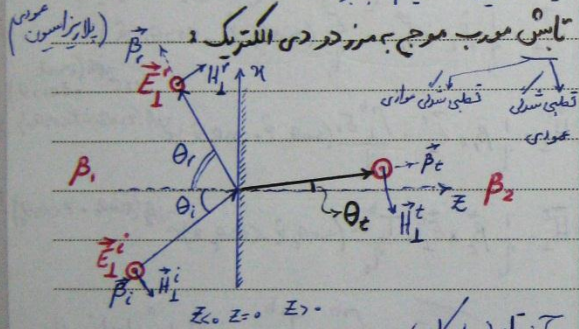 تابش مورب موج به مرز دو دی الکتریک :
(پلاریزاسیون عمودی)
قطبی شدگی عمودی
قطبی شدگی موازی
β⃗r
E⃗⊥r
H⃗⊥r
x
β1
θr
θi
β⃗t
z
β2
θt
H⃗⊥t
E⃗⊥i
H⃗⊥i
β⃗i
z<0 z=0 z>0